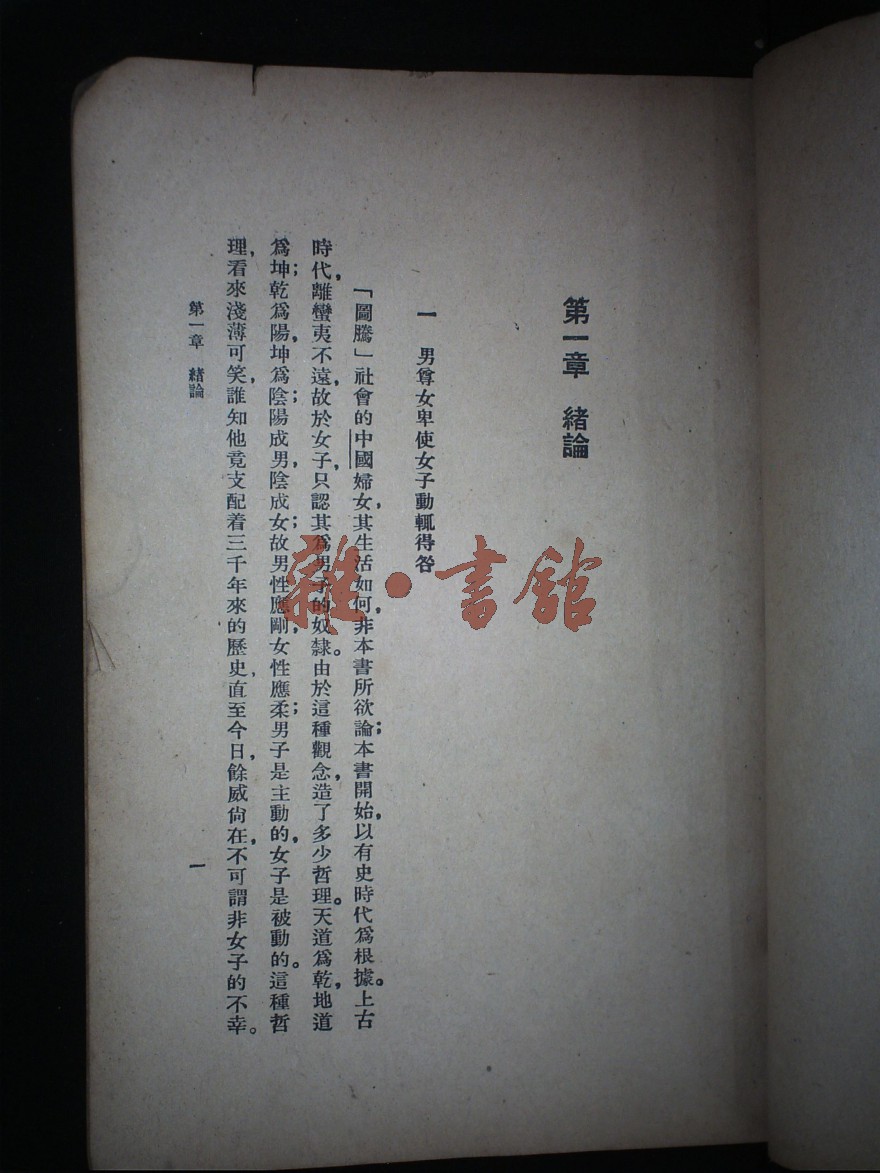 第一章 緒論
一 男尊女卑使女子動輒得咎
「圖騰」社會的中國婦女,其生活如何,非本書所欲論;本書開始,以有史時代爲根據。上古
時代,離蠻夷不遠,故於女子,只認其爲男子的奴隸。由於這種觀念,造了多少哲理。天道爲乾,地道
爲坤;乾爲陽,坤爲陰;陽成男,陰成女;故男性應剛,女性應柔;男子是主動的,女子是被動的。這種哲
理,看來淺薄可笑,誰知他竟支配着三千年來的歷史,直至今日,餘威尙在,不可謂非女子的不幸。
第一章 緒論
一
雜·書館